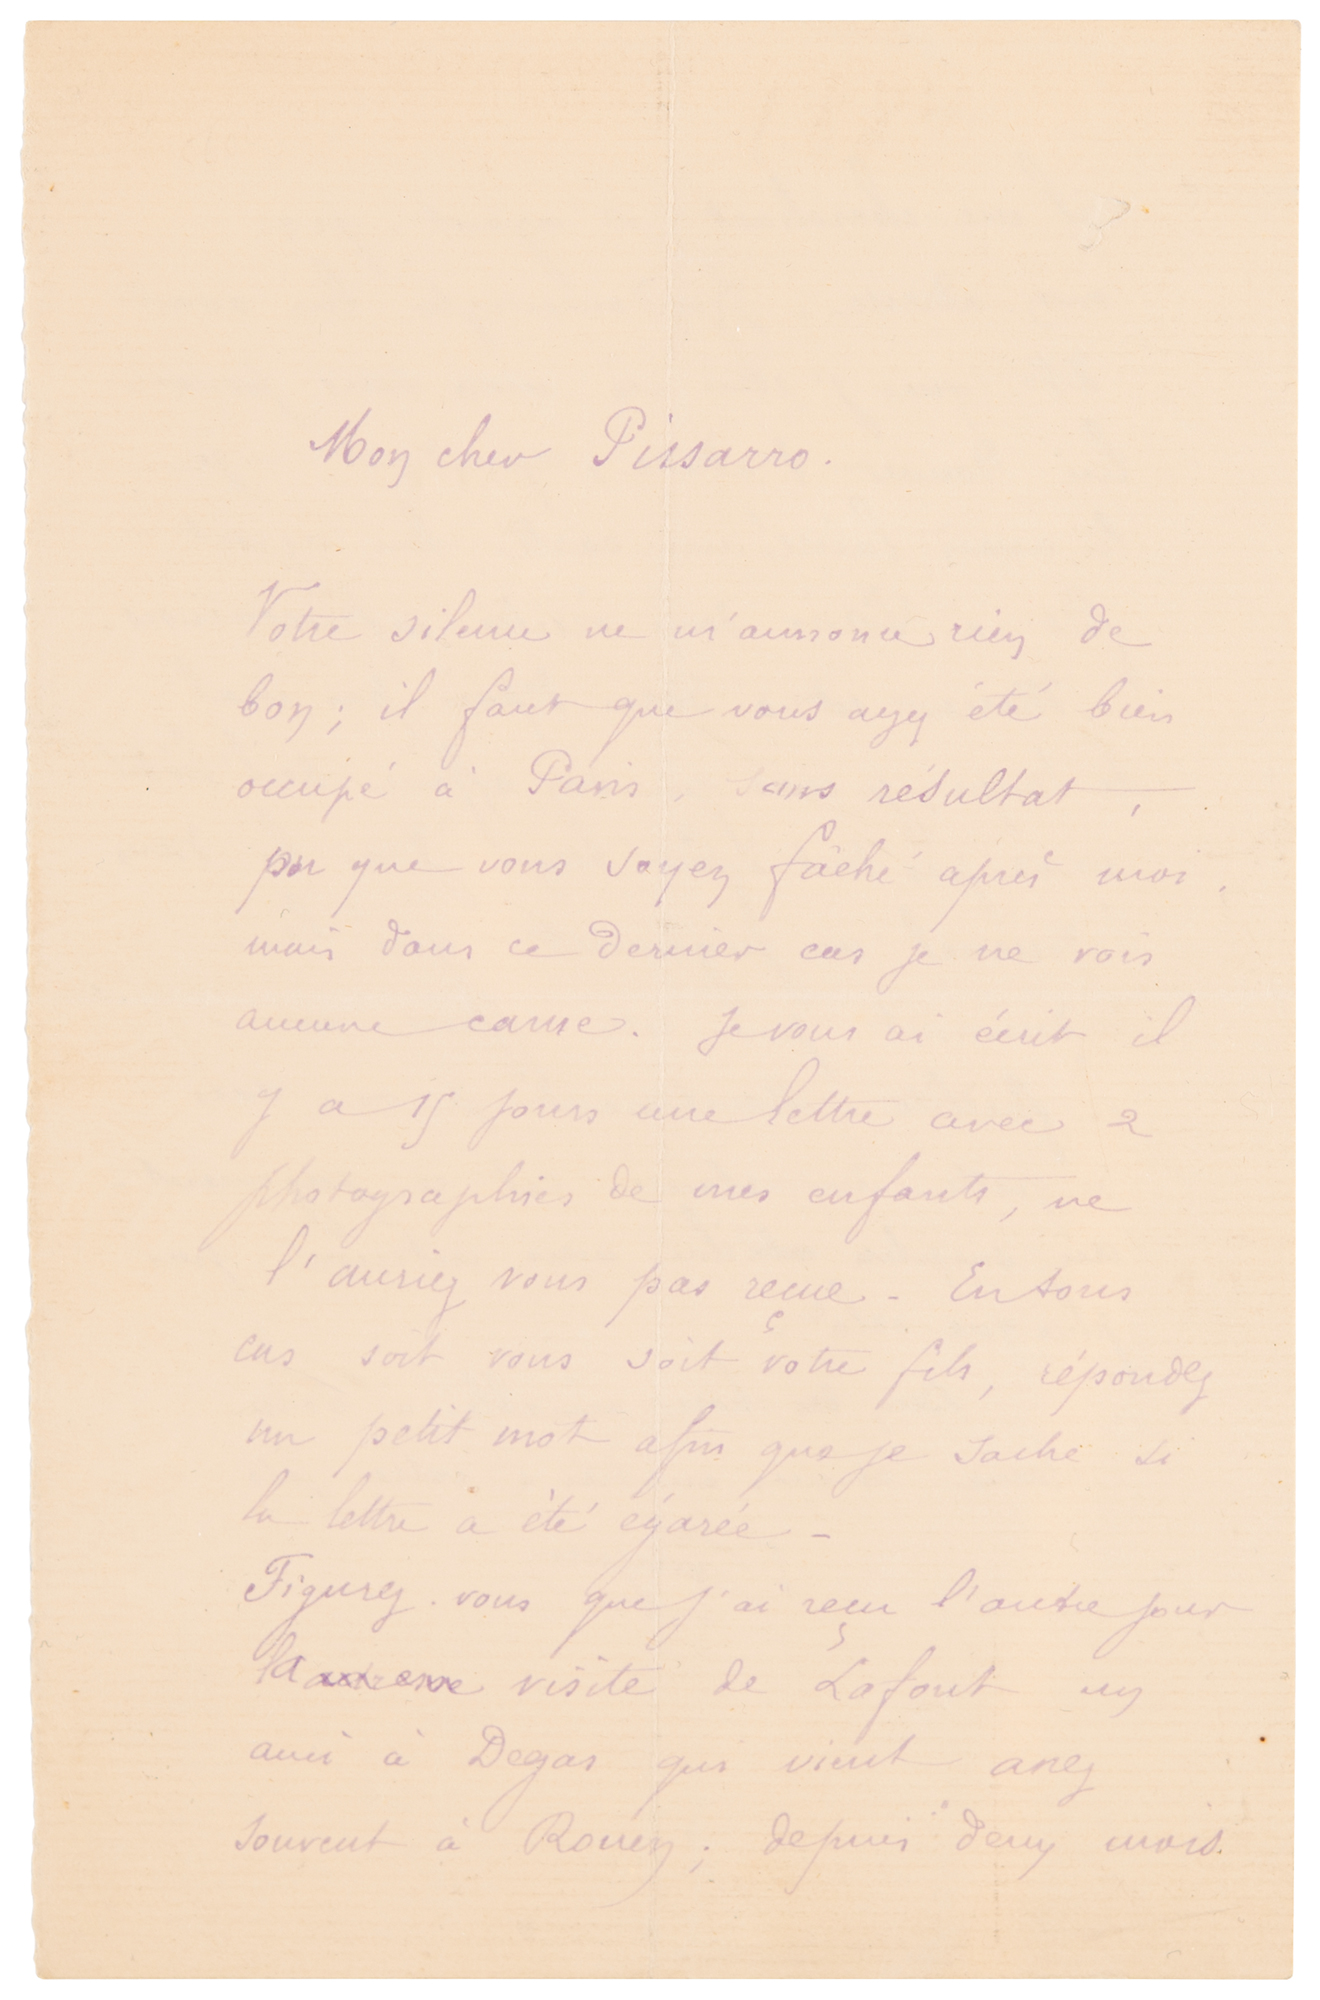 Mon cher Pissarro.
Votre silence ne m'annonce rien de
bon; il faut que vous ayez été bien
occupé à Paris, sans résultat,
ou que vous soyez fâché après moi.
mais dans ce dernier cas je ne vois
aucune cause. Je vous ai écrit il
y a 15 jours une lettre avec 2
photographies de mes enfants, ne
l'auriez vous pas reçue - En tous
cas soit vous soit votre fils, répondez
un petit mot afin que je sache si
la lettre a été égarée -
Figurez-vous que j'ai reçu l'autre jour
la visite de Lafont un
ami à Degas qui vient assez
souvent à Rouen; depuis deux mois.